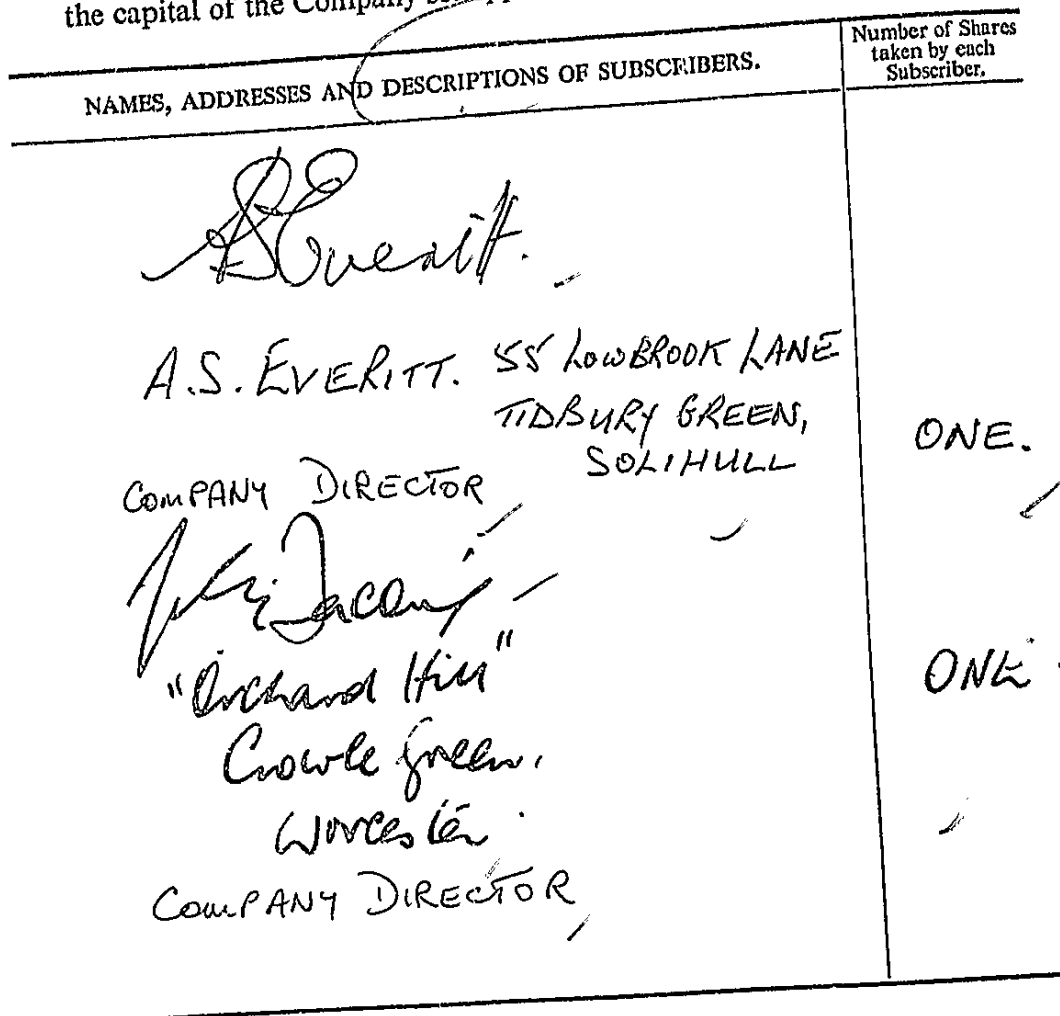 the capital of the Company
NAMES, ADDRESSES AND DESCRIPTIONS OF SUBSCRIBERS.
Number of Shares
taken by each
Subscriber.
A S Everitt.
A.S. EVERITT. 55 LOWBROOK LANE
TIDBURY GREEN,
SOLIHULL
ONE.
COMPANY DIRECTOR
"Orchard Hill"
ONE
Crowle Green.
Worcester.
COMPANY DIRECTOR